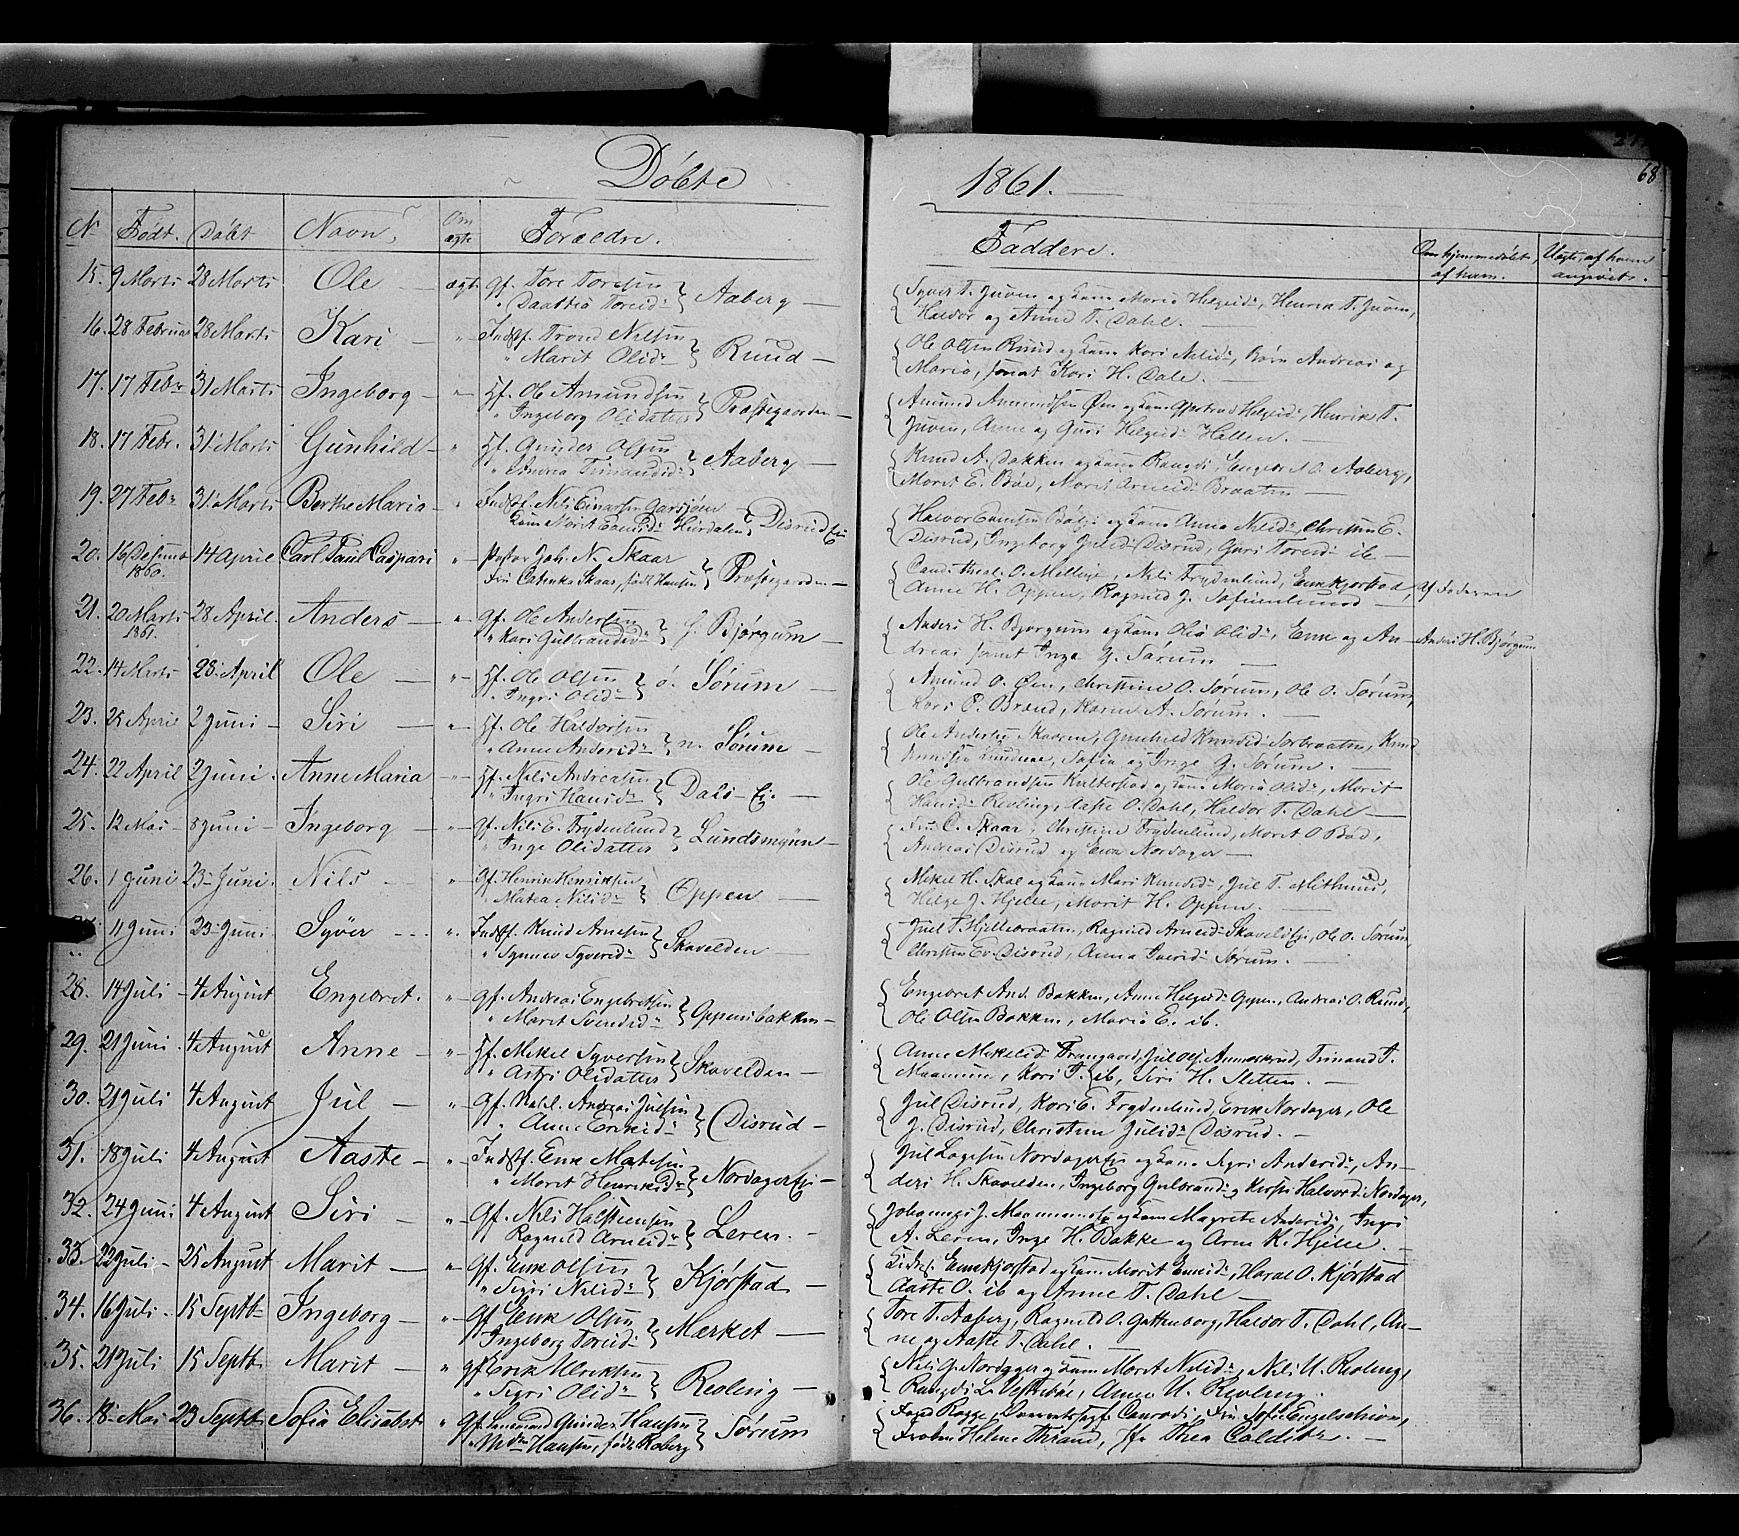 Døbte
1861.
68
N Födt. Døbt Navn. Om ægte Forældre.
Faddere.
Om hjemmedøbt, af hvem. Uægte, af hvem angivet.
15. 9 Marts 28 Marts Ole ægt. Gf. Tore Toresen
" Toresd. } Aaberg
Syver T. Juven og Kone Marie Helgesd., Henrik T. Juven,
Haldor og Anne T. Dahl.
16. 28 Februar 28 Marts Kari " Indst. Trond Nilsen
" Marit Olsd. } Ruud
Ole Olsen Ruud og Kone Kari Nilsd., Børn Andreas og
Maria, samt Kari H. Dale.
17. 17 Febr. 31 Marts Ingeborg " Hf. Ole Amundsen
" Ingeborg Olsdatter } Præstegaarden
Amund Amundsen Øen og Kone Helgesd., Henrik T.
Juven, Anne og Guri Helgesd. Hallen.
18. 17 Febr. 31 Marts Gunhild " Hf. Gunder Olsen
" Andrea } Aaberg
Knud A. Bakken og Kone Rangdi, O. Aaberg,
Marit E. Bøe, Marit Arnesd. Braaten
19. 27 Febr. 31 Marts Berthe Maria " Indst. Nils Einarsen
Kone Marit Hurdalen } Disrud Eie
Halvor og Kone Anna Nilsd., Christen E.
Disrud, Ingeborg Julsd. Disrud, Guri Toresd. ib.
20. 16 Desemb. 1860. 14 April Carl Paul Caspari " Pastor Joh. N. Skaar
Fru Cathinka Skaar, født Hansen } Præstegaarden
Cand. theol. O. , Nils Frydenlund, Kjørstad,
Anne H. Oppen, Ragnild J.
Af Faderen
21. 20 Marts 1861. 28 April Anders " Gf. Ole Andersen
" Kari Gulbrandsd. } Bjørgum
Anders H. Bjørgum og Kone Olea Olsd., og An-
dreas samt Inge G. Sørum
Anders H. Bjørgum
22. 14 Marts 28. April Ole " Hf. Ole Olsen
" Ingri Olsd. } ö. Sørum
Amund O. Øen, Christine O. Sørum, Ole O. Sørum,
Kari P. Brænd, Karen A. Sørum.
23. 25 April 2 Juni Siri " Hf. Ole Haldorsen
" Anne Andersd. } n. Sørum
Ole Andersen , Gunhild Knudsd. , Knud
, Sofia og Inge G. Sørum.
24. 22 April 2 Juni Anne Maria " Hf. Nils Andreasen
" Ingri Hansd. } Dals-Eie
Ole Gulbrandsen og Kone Maria Olsd., Marit
Hansd. Revling, Aaste O. Dahl, Haldor T. Dahl
25. 12 Mai 8 Juni Ingeborg " Gf. Nils E. Frydenlund
" Inge Olsdatter } Lundsmoen
C. Skaar, Christine Frydenlund, Marit O. Bøe,
Andreas Disrud og Nordager
26. 1 Juni 23 Juni. Nils " Gf. Henrik Henriksen
" Matea Nilsd. } Oppen
Mekel H. og Kone Mari Knudsd., Jul T. ,
Helge J. Hjelle, Marit H. Oppen.
11 Juni 23 Juni Syver " Indst. Knud Arnesen
" Synnev Syversd. } Skavelden
Juel P. Hjellebraaten, Ragnild Arnesd. Skaveldseie, Ole O. Sørum,
Christen Ev. Disrud, Anna Iversd. Sørum.
28. 14 Juli 4 August Engebret. " Gf. Andreas Engebretsen
" Marit Svendsd. } Oppensbakken
Engebret And. Bakken, Anne Helgesd. Oppen, Andreas O. Ruud,
Ole Olsen Bakken, Maria E. ib.
29. 21 Juni 4 August Anne " Hf. Mekel Syversen
" Astri Olsdatter } Skavelden
Anne Mekelsd. Framgaard, , T.
, Kari T. ib, Siri H. Sletten.
30. 21 Juli 4 August Jul " Gf. Andreas Julsen
" Anne Eriksd. } Disrud
Jul Disrud, Kari E. Frydenlund, Erik Nordager, Ole
J. Disrud, Christine Julsd. Disrud.
31. 18 Juli 4 August Aaste " Indst. Matesen
" Marit Henriksd. } Nordager Eie
Jul Lagesen Nordagereie og Kone Sigri Andersd., An-
ders H. Skavelden, Ingeborg Gulbrandsd. og Kirsti Halvorsd. Nordager,
32. 24 Juni 4 August Siri " Gf. Nils Halsteensen
Ragnild Arnesd. } Leren
Johannes J. og Kone Magrete Andersd., Ingri
A. Leren, Inge H. Bakke og Arne K. Hjelle.
33. 22 Juli 25 August Marit " Gf. Olsen
" Sigri Nilsd. } Kjørstad
Kjørstad og Kone Marit , Haral O. Kjørstad
Aaste O. ib og Anne T. Dahl
34. 16 Juli 15 Septb. Ingeborg " Gf. Olsen
Ingeborg Toresd. } Mærket
Tore T. Aaberg, Ragnild O. Gattenborg, Haldor T. Dahl, An-
ne og Aaste T. Dahl.
35. 21 Juli 15 Septb. Marit " Gf. Erik Ulriksen
" Sigri Olsd. } Revling
Nils G. Nordager og Kone Marit Nilsd., Nils U. Revling,
Rangdi L. , Anne U. Revling.
36. 18 Mai 23 Septb. Sofia Elisabet " Gf. Gunder Hansen
" Hansen, født Roberg } Sørum
Foged Ragge, Conradi, Fru Sofie Engelschiøn,
Frøken Helene Thrand, Jfr. Thea